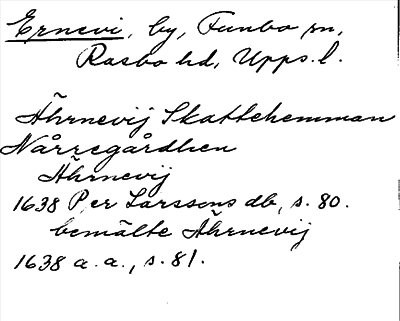 Ernevi, by, Funbo sn,
Rasbo hd, Upps. l.
Ährnevij Skattehemman
Nårregårdhen
Ährnevij
1638 Per Larssons db, s. 80.
bemälte Ährnevij
1638 a. a., s. 81.